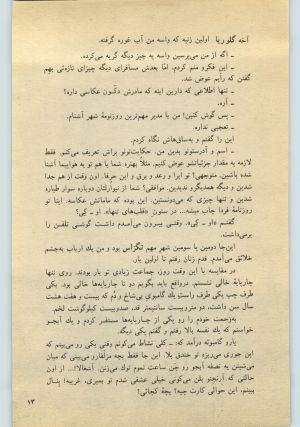 آخه گلوریا اولین زنیه که واسه من آب غوره گرفته.
ـ اگه از من می‌پرسین واسه یه چیز دیگه گریه می‌کرده.
ـ این فکرو منم کردم. امّا بعدش مسافرای دیگه چیزای تازه‌ئی بهم
گفتن که رأیم عوض شد.
ـ تنها اطلاعی که دارین اینه که مادرش دکّون عکاسی داره؟
ـ آره.
ـ پس گوش کنین! من با مدیر مهم‌ترین روزنومهٔ شهر آشنام.
ـ تعجبی نداره.
این را گفتم و به‌ساق‌هاش نگاه کردم.
ـ اسم و آدرستونو بدین من. حکایت‌تونو براش تعریف می‌کنم. فقط
لازمه یه مقدار جزئیاتشو عوض کنیم. مثلاً بهتره شما با هم تو یه هواپیما آشنا
شده باشین. متوجهی؟ تو ابرا و رعد و برق و این حرفا. اون وقت از هم جدا
شدین و دیگه همدیگرو ندیدین. موافقی؟ شما از نیوارلئان دوباره سوار طیاره
شدین و تنها چیزی که می‌دونستین، این بوده که مامانش عکاسه. اینا تو
روزنومهٔ فردا چاپ میشه... در ستون «قلب‌های تنها». او ـ کی؟
گفتم «او ـ کی»، وقتی بیرون می‌آمدم داشت گوشی تلفن را
برمی‌داشت.
این‌جا دومین یا سومین شهر مهم تگزاس بود و من یك ارباب به‌چشم
خلائق می‌آمدم. قدم زنان رفتم تا اولین بار.
در مقایسه با این وقت روز، جماعت زیادی تو بار بودند. روی تنها
چارپایهٔ خالی نشستم. درواقع باید بگویم دو تا چارپایه‌ها خالی بود. یکی
طرف چپ یکی طرف راست یك گامبوی بی‌شاخ و دُم که بیست و هفت هشت
سال سن داشت، دو متروبیست سانتیمتر قد، صدوبیست کیلوگوشت لخم.
به‌زحمت خودم را رو یکی از چارپایه‌ها مستقر کردم و یك آبجو
خواستم که یك نفسه بالا رفتم و گفتم یکی دیگه.
یارو گامبوئه درآمد که: ـ کلی نشاط می‌کنم وقتی یکی رو می‌بینم که
این جوری می‌ریزه تو خندق بلا. این جا فقط بچه مزلّفارو می‌بینی که میان
می‌شینن یه نصفه آبجو رو جن ساعت تموم نوك می‌زنن. آشغالا!... از اون
حالتی که آرنجتو بلن می‌کونی خیلی عشقی شدم تو نمیری، غریبه! پنـأل
ببینم، این حوالی کارت چیه؟ بچّهٔ کجائی؟
۱۳